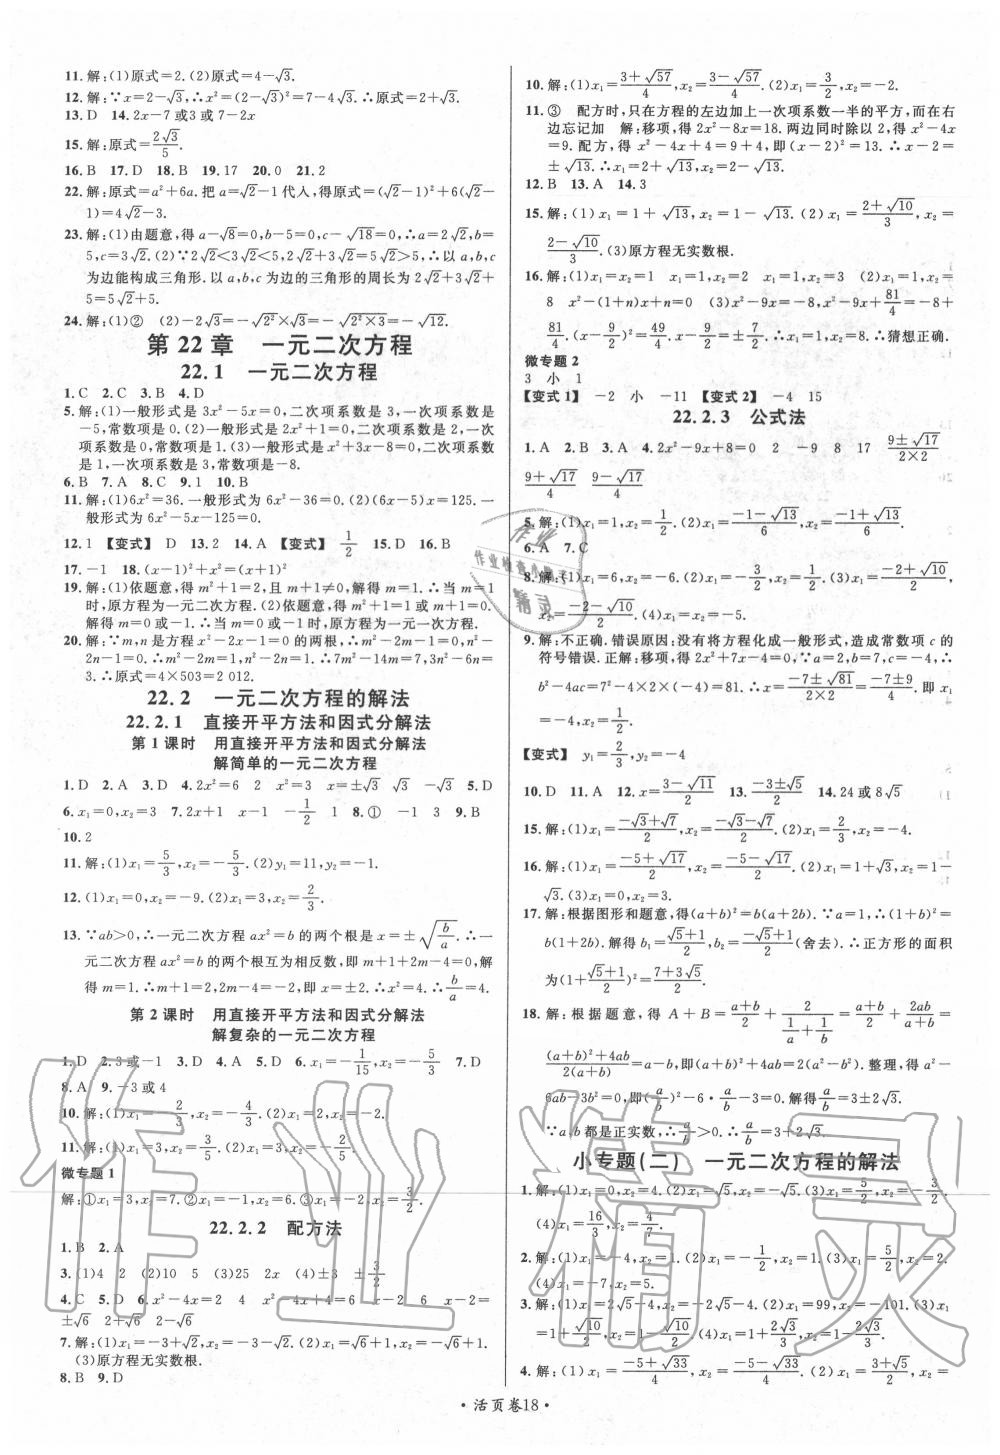 11. 解:(1)原式=2. (2)原式=4-√3.
12. 解:∵x=2-√3,∴x²=(2-√3)²=7-4√3. ∴原式=2+√3.
13. D 14. 2x-7或3或7-2x
15. 解:原式=2√3/5.
16. B 17. D 18. B 19. 17 20. 0 21. 2
22. 解:原式=a²+6a. 把a=√2-1代入,得原式=(√2-1)²+6(√2-
1)=4√2-3.
23. 解:(1)由题意,得a-√8=0,b-5=0,c-√18=0,∴a=2√2,b=
5,c=3√2. (2)∵2√2<3√2<5,2√2+3√2=5√2>5,∴以a,b,c
为边能构成三角形. 以a,b,c为边的三角形的周长为2√2+3√2+
5=5√2+5.
24. 解:(1)② (2)-2√3=-√2²×√3=-√(2²×3)=-√12.
第22章 一元二次方程
22.1 一元二次方程
1. C 2. C 3. B 4. D
5. 解:(1)一般形式是3x²-5x=0,二次项系数是3,一次项系数是
-5,常数项是0. (2)一般形式是2x²+1=0,二次项系数是2,一次
项系数是0,常数项是1. (3)一般形式是x²+3x-8=0,二次项系数
是1,一次项系数是3,常数项是-8.
6. B 7. A 8. C 9. 1 10. B
11. 解:(1)6x²=36. 一般形式为6x²-36=0. (2)(6x-5)x=125. 一
般形式为6x²-5x-125=0.
12. 1 【变式】 D 13. 2 14. A 【变式】 1/2 15. D 16. B
17. -1 18. (x-1)²+x²=(x+1)²
19. 解:(1)依题意,得m²+1=2,且m+1≠0,解得m=1. ∴当m=1
时,原方程为一元二次方程. (2)依题意,得m²+1=1或m+1=0.
解得m=0或m=-1. ∴当m=0或-1时,原方程为一元一次方程.
20. 解:∵m,n是方程x²-2x-1=0的两根,∴m²-2m-1=0,n²-
2n-1=0. ∴m²-2m=1,n²-2n=1. ∴7m²-14m=7,3n²-6n=
3. ∴原式=4×503=2 012.
22.2 一元二次方程的解法
22.2.1 直接开平方法和因式分解法
第1课时 用直接开平方法和因式分解法
解简单的一元二次方程
1. D 2. A 3. D 4. 2x²=6 2 x²=3 x=±√3 √3 -√3 5. D
6. x₁=0,x₂=3 7. 2x+1 x-1 -1/2 1 8. ① -1 3 9. B
10. 2
11. 解:(1)x₁=5/3,x₂=-5/3. (2)y₁=11,y₂=-1.
12. (1)x₁=0,x₂=-9. (2)x₁=3,x₂=2/3.
13. ∵ab>0,∴一元二次方程ax²=b的两个根是x=±√(b/a). ∴一
元二次方程ax²=b的两个根互为相反数,即m+1+2m-4=0,解
得m=1. ∴m+1=2,2m-4=-2. ∴√(b/a)=2. ∴b/a=4.
第2课时 用直接开平方法和因式分解法
解复杂的一元二次方程
1. D 2. 3或-1 3. D 4. A 5. D 6. x₁=-1/15,x₂=-5/3 7. D
8. A 9. -3或4
10. 解:(1)x₁=2/3,x₂=-4/3. (2)x₁=2,x₂=-2.
11. 解:(1)x₁=3,x₂=3/5. (2)x₁=3,x₂=-2/5.
微专题1
解:①x₁=3,x₂=7. ②x₁=-1,x₂=6. ③x₁=1,x₂=-3/2.
22.2.2 配方法
1. B 2. A
3. (1)4 2 (2)10 5 (3)25 2x (4)±3 ±3/2
4. C 5. D 6. x²-4x=2 4 x²-4x+4=6 x-2 6 x-2=
±√6 2+√6 2-√6
7. 解:(1)x₁=-3+√2,x₂=-3-√2. (2)x₁=√6+1,x₂=-√6+1.
(3)原方程无实数根.
8. B 9. D
10. 解:(1)x₁=(3+√57)/4,x₂=(3-√57)/4. (2)x₁=3/2,x₂=-2.
11. ③ 配方时,只在方程的左边加上一次项系数一半的平方,而在右
边忘记加 解:移项,得2x²-8x=18. 两边同时除以2,得x²-4x
=9. 配方,得x²-4x+4=9+4,即(x-2)²=13. ∴x-2=
±√13. ∴x₁=2+√13,x₂=2-√13.
12. B 13. A 14. 3
15. 解:(1)x₁=1+√13,x₂=1-√13. (2)x₁=(2+√10)/3,x₂=
(2-√10)/3. (3)原方程无实数根.
16. 解:(1)x₁=x₂=1 x₁=1,x₂=2 x₁=1,x₂=3 (2)x₁=1,x₂=
8 x²-(1+n)x+n=0 (3)x²-9x=-8,x²-9x+81/4=-8+
81/4. (x-9/2)²=49/4. x-9/2=±7/2. ∴x₁=1,x₂=8. ∴猜想正确.
微专题2
3 小 1
【变式1】 -2 小 -11 【变式2】 -4 15
22.2.3 公式法
1. A 2. B 3. A 4. 2x²-9x+8=0 2 -9 8 17 (9±√17)/(2×2)
(9+√17)/4 (9-√17)/4
5. 解:(1)x₁=1,x₂=1/2. (2)x₁=(-1-√13)/6,x₂=(-1+√13)/6.
6. A 7. C
8. 解:(1)x₁=1,x₂=-6. (2)x₁=x₂=1/2. (3)x₁=(-2+√10)/2,
x₂=(-2-√10)/2. (4)x₁=x₂=-5.
9. 解:不正确. 错误原因:没有将方程化成一般形式,造成常数项c的
符号错误. 正解:移项,得2x²+7x-4=0. ∵a=2,b=7,c=-4,∴
b²-4ac=7²-4×2×(-4)=81>0. ∴x=(-7±√81)/(2×2)=(-7±9)/4. 即x₁
=-4,x₂=1/2.
【变式】 y₁=2/3,y₂=-4
10. D 11. A 12. x=(3-√11)/2 13. (-3±√5)/2 14. 24或8√5
15. 解:(1)x₁=(-√3+√7)/2,x₂=(-√3-√7)/2. (2)x₁=2/3,x₂=-4.
16. 解:(1)x₁=(-5+√17)/2,x₂=(-5-√17)/2. (2)x₁=1+√3,x₂=1-
√3. (3)x₁=0,x₂=3.
17. 解:根据图形和题意,得(a+b)²=b(a+2b). ∵a=1,∴(1+b)²=
b(1+2b). 解得b₁=(√5+1)/2,b₂=(-√5+1)/2(舍去). ∴正方形的面积
为(1+(√5+1)/2)²=(7+3√5)/2.
18. 解:根据题意,得A+B=(a+b)/2+2/(1/a+1/b)=(a+b)/2+2ab/(a+b)=
((a+b)²+4ab)/(2(a+b))=a-b,即(a+b)²+4ab=2(a²-b²). 整理,得a²-
6ab-3b²=0,即(a/b)²-6·a/b-3=0. 解得a/b=3±2√3.
∵a,b都是正实数,∴a/b>0. ∴a/b=3+2√3.
小专题(二) 一元二次方程的解法
1. 解:(1)x₁=0,x₂=4. (2)x₁=2,x₂=-5. (3)x₁=5/2,x₂=-3/2.
(4)x₁=16/3,x₂=4/7.
2. 解:(1)x₁=-4,x₂=1. (2)x₁=x₂=1. (3)x₁=5/2,x₂=2.
(4)x₁=-7,x₂=5.
3. 解:(1)x₁=2√5-4,x₂=-2√5-4. (2)x₁=99,x₂=-101. (3)x₁
=1+√10/2,x₂=1-√10/2. (4)x₁=1+2√3/3,x₂=1-2√3/3.
4. 解:(1)x₁=(-5+√33)/4,x₂=(-5-√33)/4. (2)x₁=(3+√5)/2,x₂=(3-√5)/2.
·活页卷18·